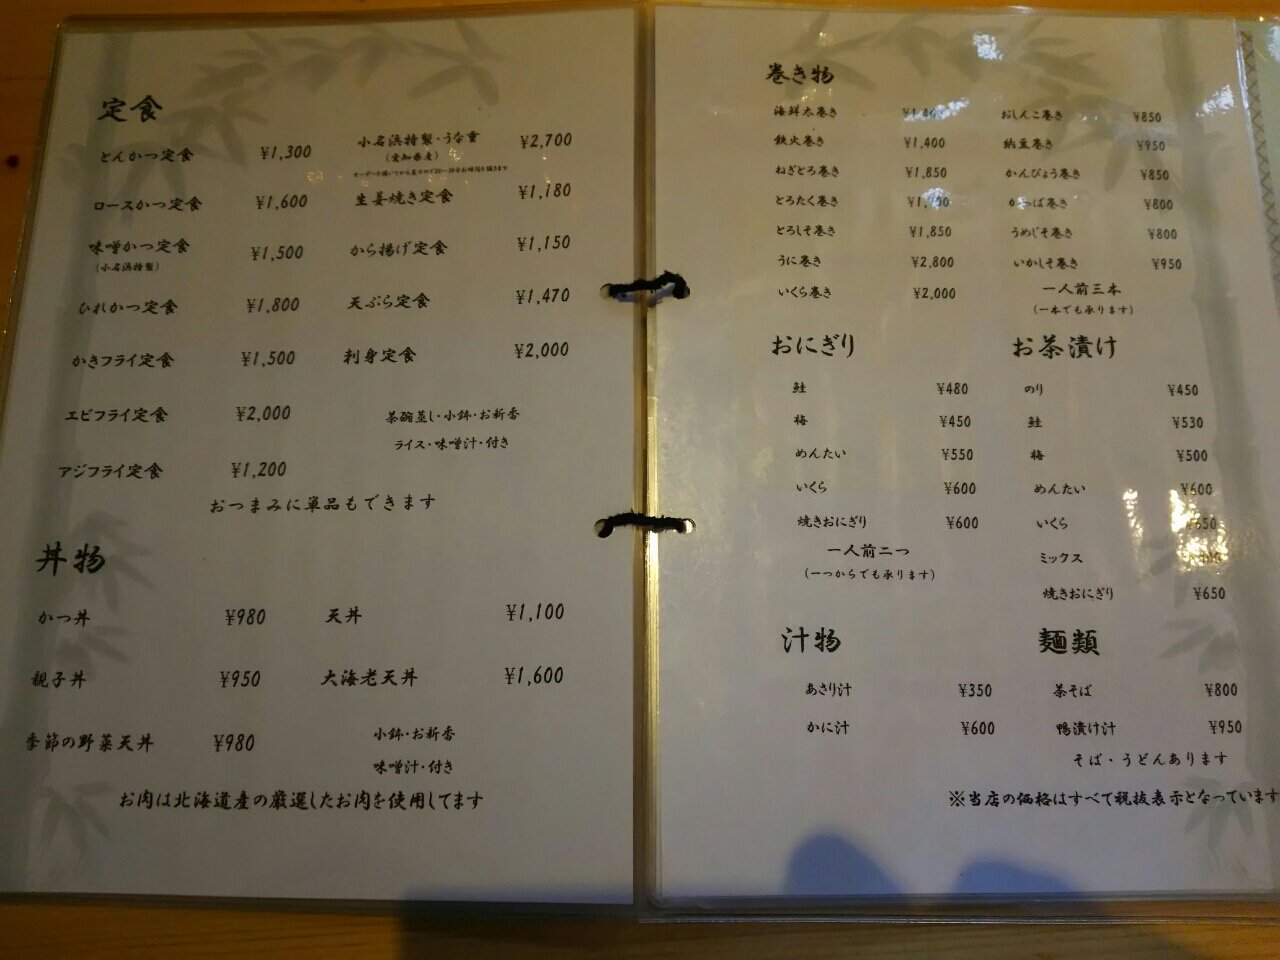 定食
とんかつ定食 ¥1,300
ロースかつ定食 ¥1,600
味噌かつ定食 ¥1,500
(小名浜特製)
ひれかつ定食 ¥1,800
かきフライ定食 ¥1,500
エビフライ定食 ¥2,000
アジフライ定食 ¥1,200
小名浜特製・うな重 ¥2,700
(愛知県産)
生姜焼き定食 ¥1,180
から揚げ定食 ¥1,150
天ぷら定食 ¥1,470
刺身定食 ¥2,000
茶碗蒸し・小鉢・お新香
ライス・味噌汁・付き
おつまみに単品もできます
丼物
かつ丼 ¥980
親子丼 ¥950
季節の野菜天丼 ¥980
天丼 ¥1,100
大海老天丼 ¥1,600
小鉢・お新香
味噌汁・付き
お肉は北海道産の厳選したお肉を使用してます
巻き物
海鮮太巻き
鉄火巻き ¥1,400
ねぎとろ巻き ¥1,850
とろたく巻き
とろしそ巻き ¥1,850
うに巻き ¥2,800
いくら巻き ¥2,000
おしんこ巻き ¥850
納豆巻き ¥950
かんぴょう巻き ¥850
かっぱ巻き ¥800
うめじそ巻き ¥800
いかしそ巻き ¥950
一人前三本
(一本でも承ります)
おにぎり
鮭 ¥480
梅 ¥450
めんたい ¥550
いくら ¥600
焼きおにぎり ¥600
一人前二つ
(一つからでも承ります)
お茶漬け
のり ¥450
鮭 ¥530
梅 ¥500
めんたい ¥600
いくら ¥650
ミックス
焼きおにぎり ¥650
汁物
あさり汁 ¥350
かに汁 ¥600
麺類
茶そば ¥800
鴨漬け汁 ¥950
そば・うどんあります
※当店の価格はすべて税抜表示となっています